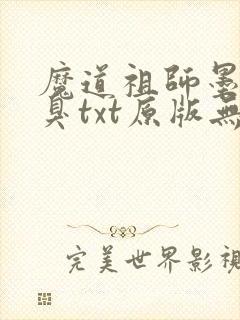 魔道祖師墨
臭txt原版無
完美世界影視